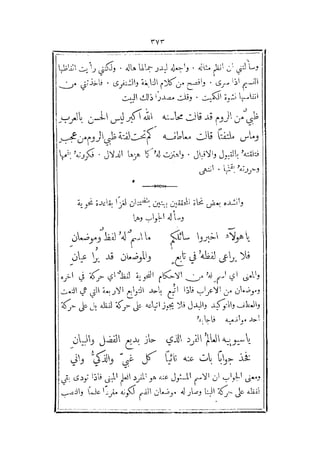 ٣٧٣
وسألني ان انظم مثاله ٠ واجعله ليدر جمالها هاله ٠ ولكنني رأيت الفاظها
النسيم اذا سرى ٠ وافصح من كلام النابغة والشنفرى ٠ فاخذتني من
انفاسها نشوة الكميت ٠ وقلت مصدرًا ذلك البيت
ظبيٌ من الروم قد قالت محاسنه الله اكبر ليس الحسن بالعرب
وماس ملتفتًا قالت معاطفه كم تحت لفتة ظبي الروم من عجب
فتلقته بالقبول والاقبال ٠ واهتزت له كما هزها الدلال ٠ فكررته بفمها
وجررته ٠ انتهى
وانشده بعض نحاة المتفقين بيتين يتضمنان لغزًا بقاعدة نحوية
وسأله الجواب وها
ياهولاء اخبروا سائلكم ما اسم له لفظ وموضعان
فلا يراعى لفظه في تابع والموضعان قد يراعيان
والمعنى اي اسم له من الاحكام النحوية لفظ اي حركة في آخره
وموضعان من الاعراب فاذا اتبع باحد التوابع الاربعة التي هي النعت
والعطف والتوكيد والبدل فلا يجوز اتباعه على حركة لفظه بل على حركة
احد موضعيه فاجابه
ياسيبويه العالم الفرد الذي حاز بديع الفضل والبيان
فخذ جوابًا بات عنه نائيًا كل غبي والذكي داني
ومعنى الجواب ان الاسم المسئول عنه هو المفرد العلم المبني فاذا نودي بقي
لفظه على حركة البنا وصار له موضعان الضم لكونه مفردًا علمًا والنصب